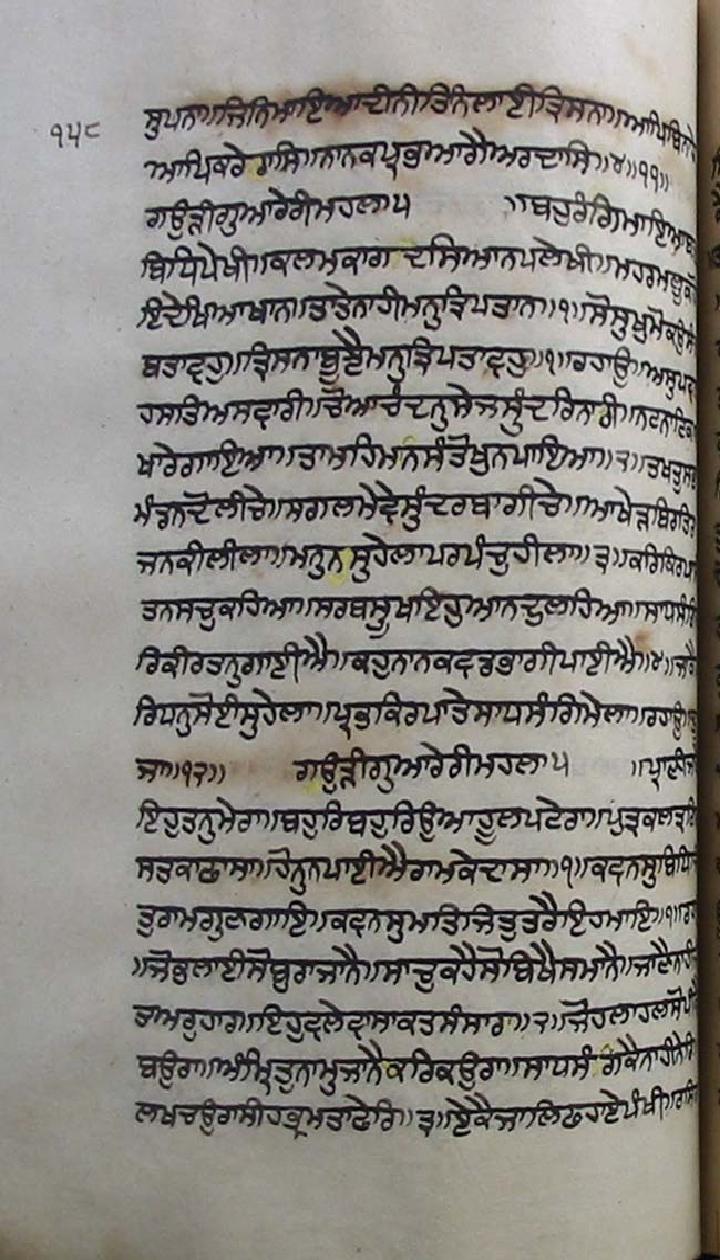 ੧੫੮
ਸੁਪਨਾ॥ਜਿਨਿਮਾਇਆਦੀਨੀਤਿਨਿਲਾਈਤ੍ਰਿਸਨਾ॥ਆਪਿ
ਆਪਿਕਰੇਰਾਸਿ॥ਨਾਨਕਪ੍ਰਭਆਗੈਅਰਦਾਸਿ॥੪॥੧੧॥
ਗਉੜੀਗੁਆਰੇਰੀਮਹਲਾ੫ ॥ਬਹੁਰੰਗਿਮਾਇਆ
ਬਿਧਿਪੇਖੀ॥ਕਲਮਕਾਗਦਸਿਆਨਪਲੇਖੀ॥ਮਹਰਮਲੂਕ
ਇਦੇਖਿਆਖਾਨ॥ਤਾਤੇਨਾਹੀਮਨੁਤ੍ਰਿਪਤਾਨ॥੧॥ਸੋਸੁਖੁਮੋਕਉਸੰ
ਬਤਾਵਹੁ॥ਤ੍ਰਿਸਨਾਬੂਝੈਮਨੁਤ੍ਰਿਪਤਾਵਹੁ॥੧॥ਰਹਾਉ॥ਅਸੁਪਵ
ਹਸਤਿਅਸਵਾਰੀ॥ਚੋਆਚੰਦਨੁਸੇਜਸੁੰਦਰਿਨਾਰੀ॥ਨਟਨਾਟਿਕ
ਖਾਰੇਗਾਇਆ॥ਤਾਮਹਿਮਨਿਸੰਤੋਖੁਨਪਾਇਆ॥੨॥ਤਖਤੁਸਭ
ਮੰਡਨਦੋਲੀਚੇ॥ਸਗਲਮੇਵੇਸੁੰਦਰਬਾਗੀਚੇ॥ਆਖੇੜਬਿਰਤਿ
ਜਨਕੀਲੀਲਾ॥ਮਨੁਨਸੁਹੇਲਾਪਰਪੰਚੁਹੀਲਾ॥੩॥ਕਰਿਕਿਰਪਾ
ਤਨਸਚੁਕਹਿਆ॥ਸਰਬਸੂਖਇਹੁਆਨਦੁਲਹਿਆ॥ਸਾਧਸੰਗਿ
ਰਿਕੀਰਤਨੁਗਾਈਐ॥ਕਹੁਨਾਨਕਵਡਭਾਗੀਪਾਈਐ॥੪॥ਜਾਕੈ
ਰਿਧਨੁਸੋਈਸੁਹੇਲਾ॥ਪ੍ਰਭਕਿਰਪਾਤੇਸਾਧਸੰਗਿਮੇਲਾ॥ਰਹਾਉ
ਜਾ॥੧੨॥ ਗਉੜੀਗੁਆਰੇਰੀਮਹਲਾ੫ ॥ਪ੍ਰਾਣੀਜਾ
ਇਹੁਤਨੁਮੇਰਾ॥ਬਹੁਰਿਬਹੁਰਿਉਆਹੂਲਪਟੇਰਾ॥ਪੁਤ੍ਰਕਲਤ੍ਰ
ਸਤਕਾਫਾਸਾ॥ਹੋਨੁਨਪਾਈਐਰਾਮਕੇਦਾਸਾ॥੧॥ਕਵਨਸੁਬਿਧਿ
ਤੁਰਾਮਗੁਣਗਾਇ॥ਕਵਨਸੁਮਤਿਜਿਤੁਤਰੈਇਹਮਾਇ॥੧॥ਰਹ
॥ਜੋਭਲਾਈਸੋਬੁਰਾਜਾਨੈ॥ਸਾਚੁਕਹੈਸੋਬਿਖੈਸਮਾਨੈ॥ਜਾਣੈਨਾਹੀ
ਤਾਅਰੁਹਾਰ॥ਇਹੁਵਲੇਵਾਸਾਕਤਸੰਸਾਰ॥੨॥ਜੋਹਲਾਹਲਸੋਪੀ
ਬਉਰਾ॥ਅੰਮ੍ਰਿਤੁਨਾਮੁਜਾਨੈਕਰਿਕਉਰਾ॥ਸਾਧਸੰਗਕੈਨਾਹੀਨੇਰਿ
ਲਖਚਉਰਾਸੀਹਭ੍ਰਮਤਾਫੇਰਿ॥੩॥ਏਕੈਜਾਲਿਫਹਾਏਪੰਖੀ॥